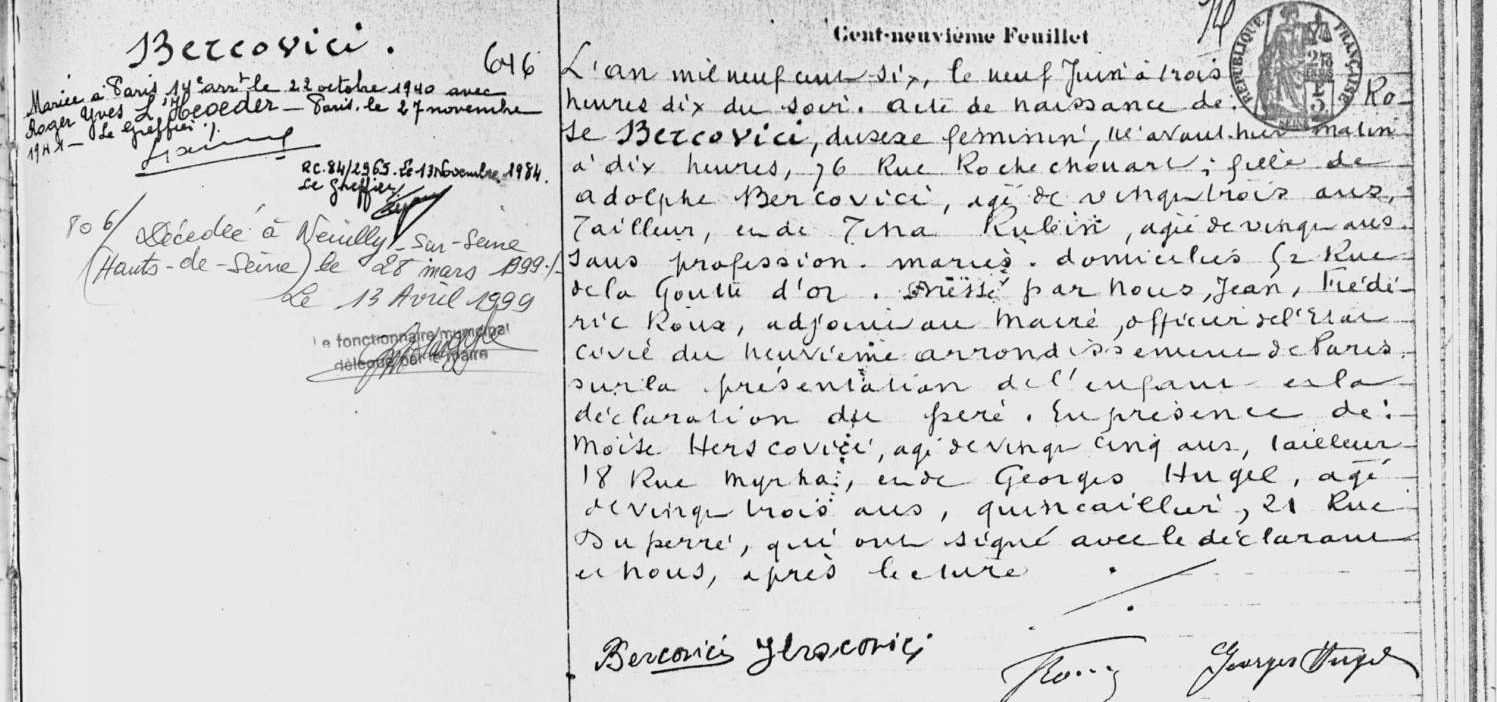 Bercovici.
646
Mariée à Paris 14e arrt le 22 octobre 1940 avec
Roger Yves L'Hegeder — Paris. le 27 novembre
Le Greffier
RC. 84/2965. Le 13 Novembre 1984.
Le Greffier
806/ Décédée à Neuilly-sur-Seine
(Hauts-de-Seine) le 28 mars 1999./.
Le 13 Avril 1999
Le fonctionnaire municipal
délégué par le maire
Cent-neuvième Feuillet
RÉPUBLIQUE FRANÇAISE
SEINE
L'an mil neuf cent six, le neuf Juin à trois
heures dix du soir. acte de naissance de Ro-
se Bercovici, du sexe feminin, né avant-hier matin
à dix heures, 76 Rue Rochechouart ; fille de
adolphe Bercovici, agé de vingt trois ans,
Tailleur, et de Tina Rubin, agée de vingt ans.
sans profession. mariés. domiciliés 52 Rue
de la Goutte d'or. Dressé par nous, Jean, Frédé-
ric Roux, adjoint au Maire, officier de l'Etat
civil du neuvième arrondissement de Paris.
sur la présentation de l'enfant et la
déclaration du père. En présence de :
Moïse Herscovici, agé de vingt cinq ans, tailleur
18 Rue Myrha, et de Georges Hugel, agé
de vingt trois ans, quincaillier, 21 Rue
Duperré, qui ont signé avec le déclarant
et nous, après lecture
Bercovici Herscovici Roux Georges Hugel